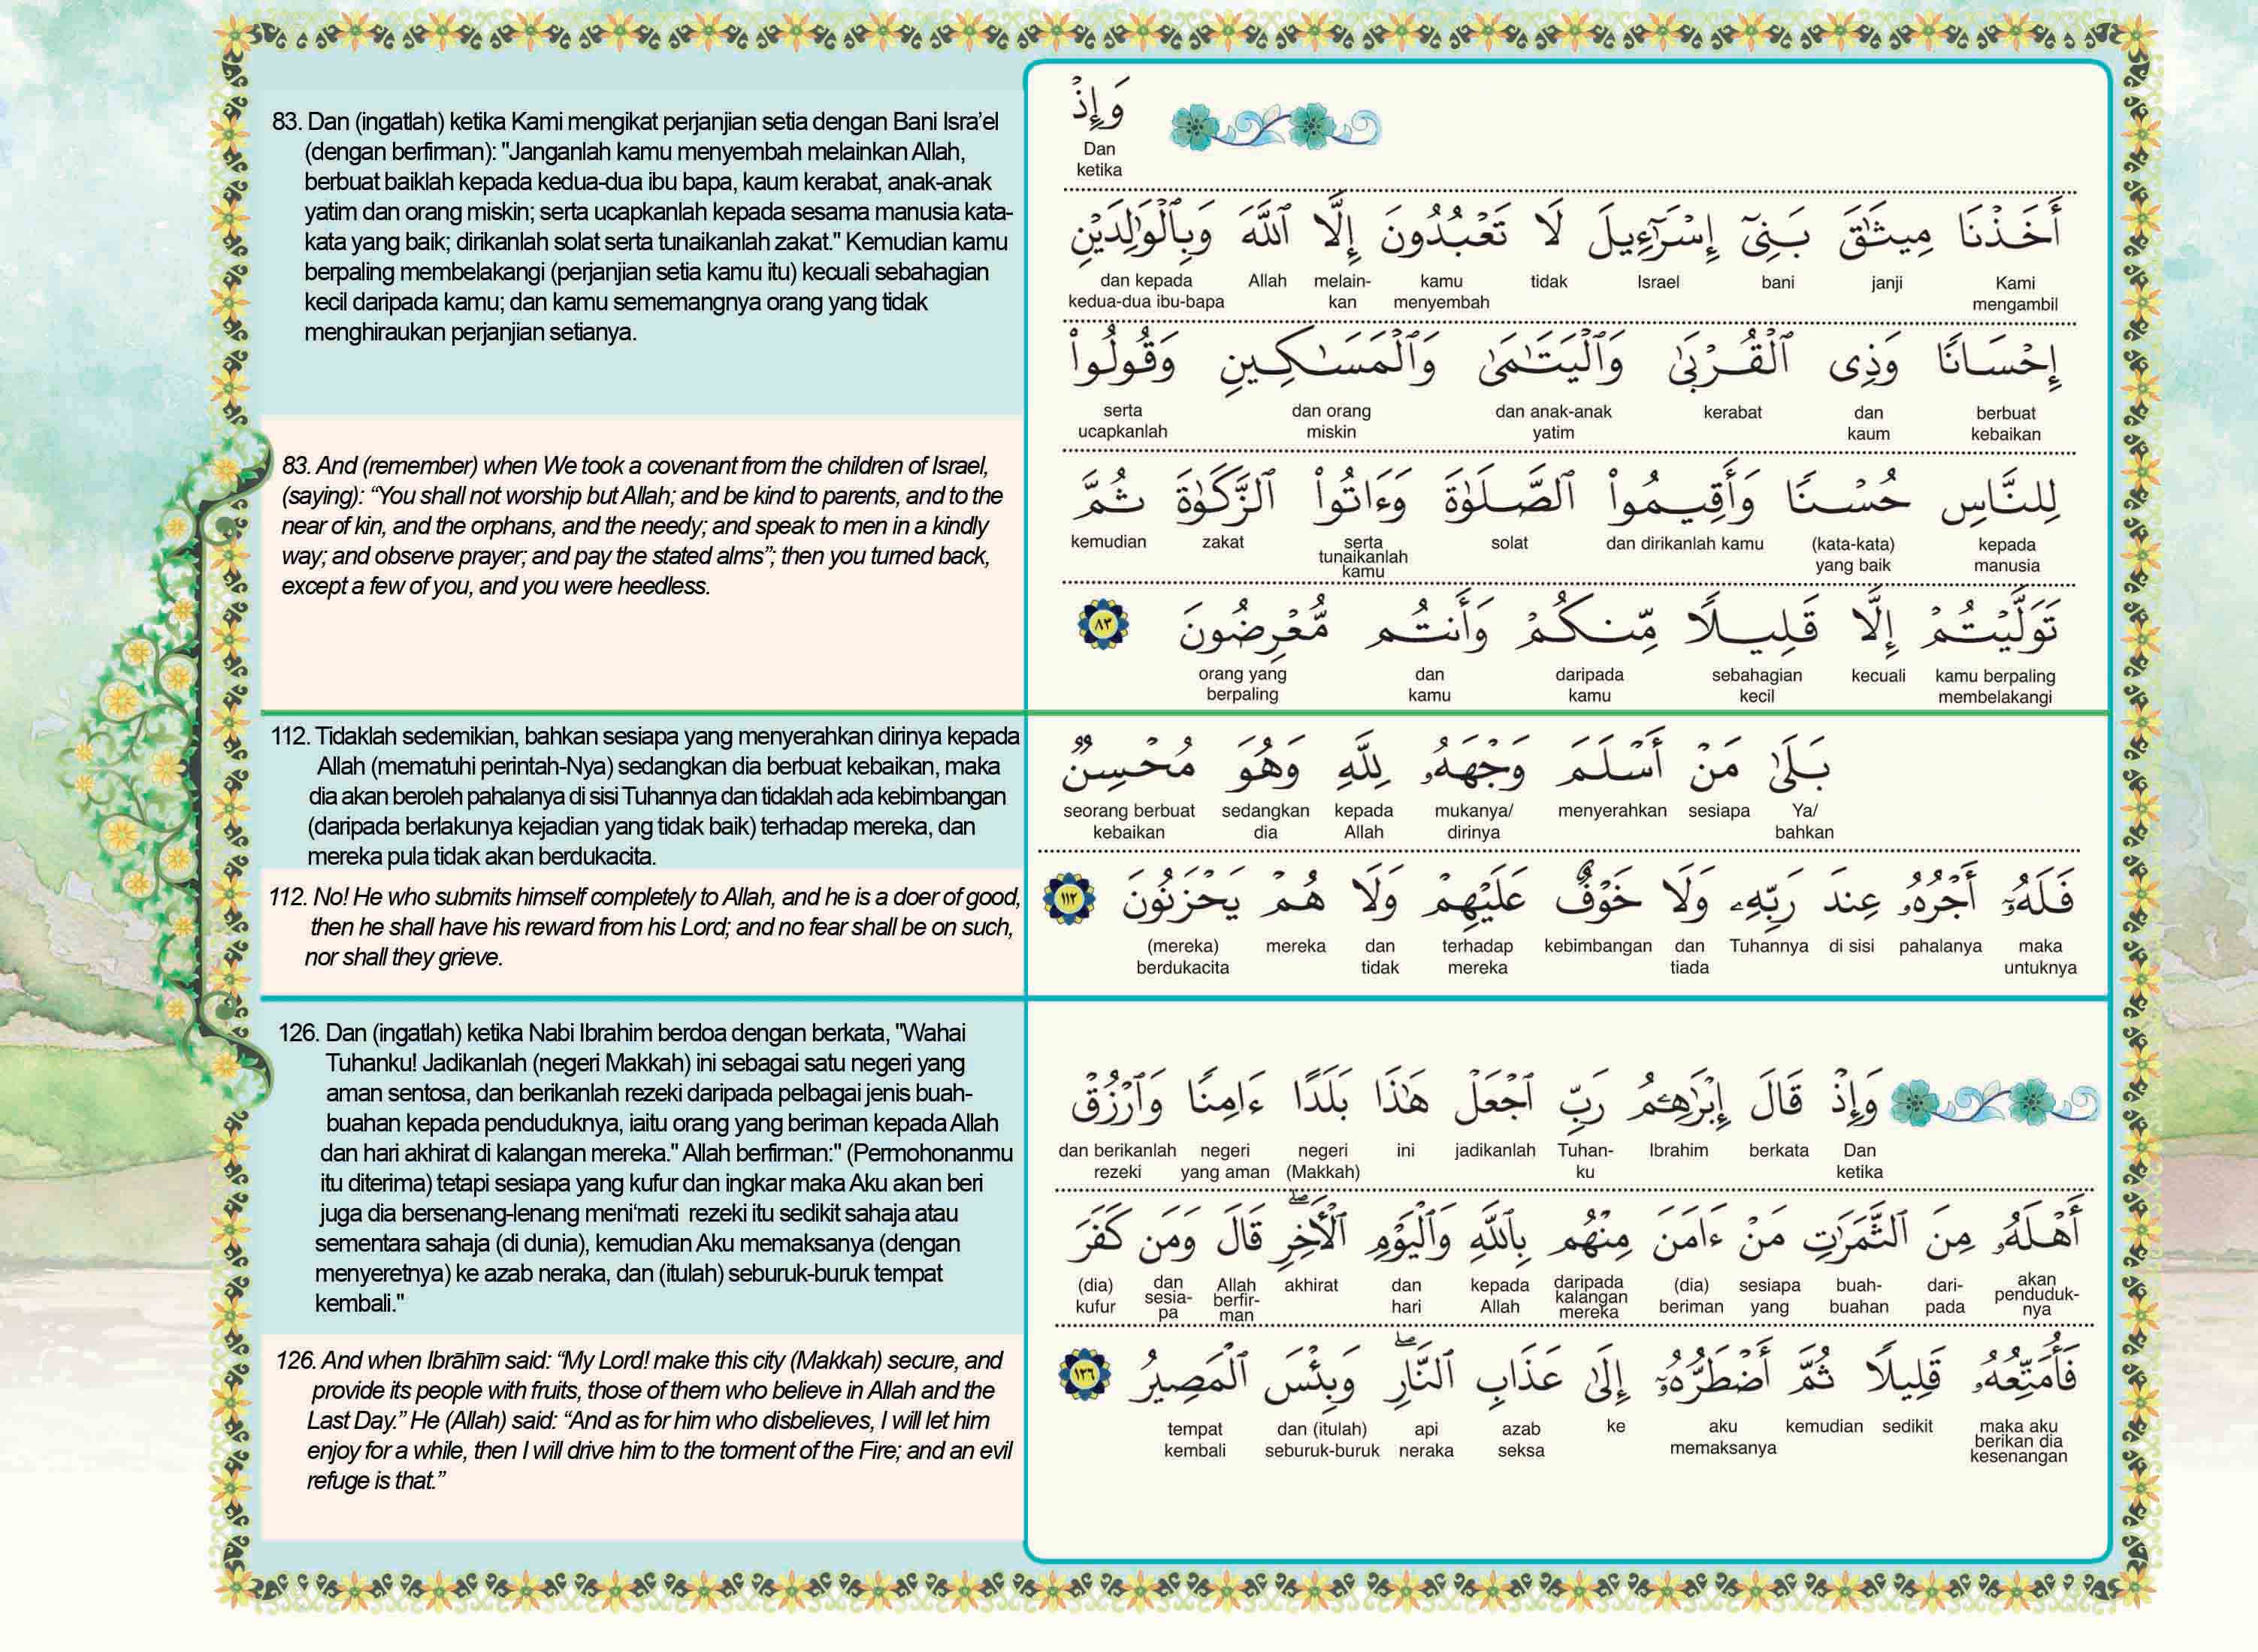 83. Dan (ingatlah) ketika Kami mengikat perjanjian setia dengan Bani Isra’el
(dengan berfirman): "Janganlah kamu menyembah melainkan Allah,
berbuat baiklah kepada kedua-dua ibu bapa, kaum kerabat, anak-anak
yatim dan orang miskin; serta ucapkanlah kepada sesama manusia kata-
kata yang baik; dirikanlah solat serta tunaikanlah zakat." Kemudian kamu
berpaling membelakangi (perjanjian setia kamu itu) kecuali sebahagian
kecil daripada kamu; dan kamu sememangnya orang yang tidak
menghiraukan perjanjian setianya.
83. And (remember) when We took a covenant from the children of Israel,
(saying): “You shall not worship but Allah; and be kind to parents, and to the
near of kin, and the orphans, and the needy; and speak to men in a kindly
way; and observe prayer; and pay the stated alms”; then you turned back,
except a few of you, and you were heedless.
وَإِذْ
Dan
ketika
أَخَذْنَا مِيثَٰقَ بَنِىٓ إِسْرَٰٓءِيلَ لَا تَعْبُدُونَ إِلَّا ٱللَّهَ وَبِٱلْوَٰلِدَيْنِ
dan kepada Allah melain- kamu tidak Israel bani janji Kami
kedua-dua ibu-bapa kan menyembah mengambil
إِحْسَانًا وَذِى ٱلْقُرْبَىٰ وَٱلْيَتَٰمَىٰ وَٱلْمَسَٰكِينِ وَقُولُوا۟
serta dan orang dan anak-anak kerabat dan berbuat
ucapkanlah miskin yatim kaum kebaikan
لِلنَّاسِ حُسْنًا وَأَقِيمُوا۟ ٱلصَّلَوٰةَ وَءَاتُوا۟ ٱلزَّكَوٰةَ ثُمَّ
kemudian zakat serta solat dan dirikanlah kamu (kata-kata) kepada
tunaikanlah yang baik manusia
kamu
تَوَلَّيْتُمْ إِلَّا قَلِيلًا مِّنكُمْ وَأَنتُم مُّعْرِضُونَ ٨٣
orang yang dan daripada sebahagian kecuali kamu berpaling
berpaling kamu kamu kecil membelakangi
112. Tidaklah sedemikian, bahkan sesiapa yang menyerahkan dirinya kepada
Allah (mematuhi perintah-Nya) sedangkan dia berbuat kebaikan, maka
dia akan beroleh pahalanya di sisi Tuhannya dan tidaklah ada kebimbangan
(daripada berlakunya kejadian yang tidak baik) terhadap mereka, dan
mereka pula tidak akan berdukacita.
112. No! He who submits himself completely to Allah, and he is a doer of good,
then he shall have his reward from his Lord; and no fear shall be on such,
nor shall they grieve.
بَلَىٰ مَنْ أَسْلَمَ وَجْهَهُۥ لِلَّهِ وَهُوَ مُحْسِنٌ
seorang berbuat sedangkan kepada mukanya/ menyerahkan sesiapa Ya/
kebaikan dia Allah dirinya bahkan
فَلَهُۥٓ أَجْرُهُۥ عِندَ رَبِّهِۦ وَلَا خَوْفٌ عَلَيْهِمْ وَلَا هُمْ يَحْزَنُونَ ١١٢
(mereka) mereka dan terhadap kebimbangan dan Tuhannya di sisi pahalanya maka
berdukacita tidak mereka tiada untuknya
126. Dan (ingatlah) ketika Nabi Ibrahim berdoa dengan berkata, "Wahai
Tuhanku! Jadikanlah (negeri Makkah) ini sebagai satu negeri yang
aman sentosa, dan berikanlah rezeki daripada pelbagai jenis buah-
buahan kepada penduduknya, iaitu orang yang beriman kepada Allah
dan hari akhirat di kalangan mereka." Allah berfirman:" (Permohonanmu
itu diterima) tetapi sesiapa yang kufur dan ingkar maka Aku akan beri
juga dia bersenang-lenang meni‘mati rezeki itu sedikit sahaja atau
sementara sahaja (di dunia), kemudian Aku memaksanya (dengan
menyeretnya) ke azab neraka, dan (itulah) seburuk-buruk tempat
kembali."
126. And when Ibrāhīm said: “My Lord! make this city (Makkah) secure, and
provide its people with fruits, those of them who believe in Allah and the
Last Day.” He (Allah) said: “And as for him who disbelieves, I will let him
enjoy for a while, then I will drive him to the torment of the Fire; and an evil
refuge is that.”
وَإِذْ قَالَ إِبْرَٰهِـۧمُ رَبِّ ٱجْعَلْ هَٰذَا بَلَدًا ءَامِنًا وَٱرْزُقْ
dan berikanlah negeri negeri ini jadikanlah Tuhan- Ibrahim berkata Dan
rezeki yang aman (Makkah) ku ketika
أَهْلَهُۥ مِنَ ٱلثَّمَرَٰتِ مَنْ ءَامَنَ مِنْهُم بِٱللَّهِ وَٱلْيَوْمِ ٱلْءَاخِرِ ۖ قَالَ وَمَن كَفَرَ
(dia) dan Allah akhirat dan kepada daripada (dia) sesiapa buah- dari- akan
kufur sesia- berfir- hari Allah kalangan beriman yang buahan pada penduduk-
pa man mereka nya
فَأُمَتِّعُهُۥ قَلِيلًا ثُمَّ أَضْطَرُّهُۥٓ إِلَىٰ عَذَابِ ٱلنَّارِ ۖ وَبِئْسَ ٱلْمَصِيرُ ١٢٦
tempat dan (itulah) api azab ke aku kemudian sedikit maka aku
kembali seburuk-buruk neraka seksa memaksanya berikan dia
kesenangan